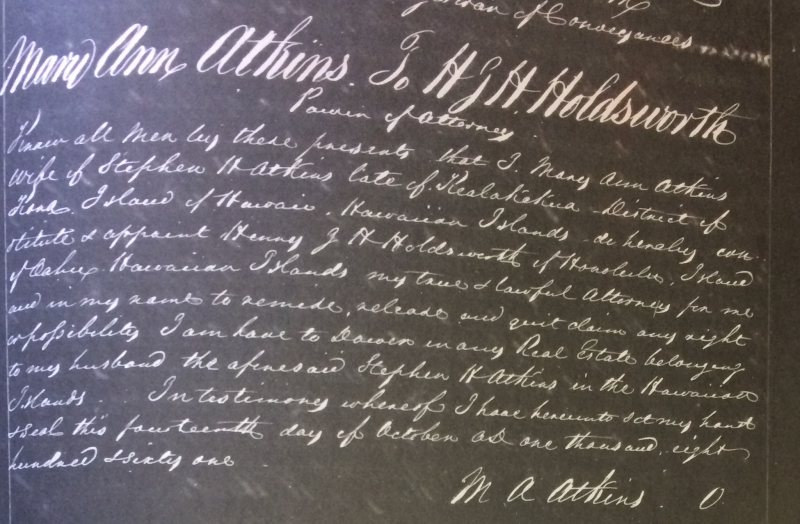 of Conveyances
Mary Ann Atkins. To H G H Holdsworth
Power of Attorney.
Know all Men by these presents that I. Mary Ann Atkins
wife of Stephen H Atkins late of Kealakekua District of
Kona. Island of Hawaii. Hawaiian Islands do hereby con-
stitute & appoint Henry G H Holdsworth of Honolulu, Island
of Oahu Hawaiian Islands my true & lawful Attorney for me
and in my name to remise, release and quit claim any right
or possibility I am have to Dower in any Real Estate belonging
to my husband the aforesaid Stephen H Atkins in the Hawaiian
Islands. In testimony whereof I have hereunto set my hand
& seal this fourteenth day of October AD one thousand, eight
hundred & sixty one
M A Atkins. O